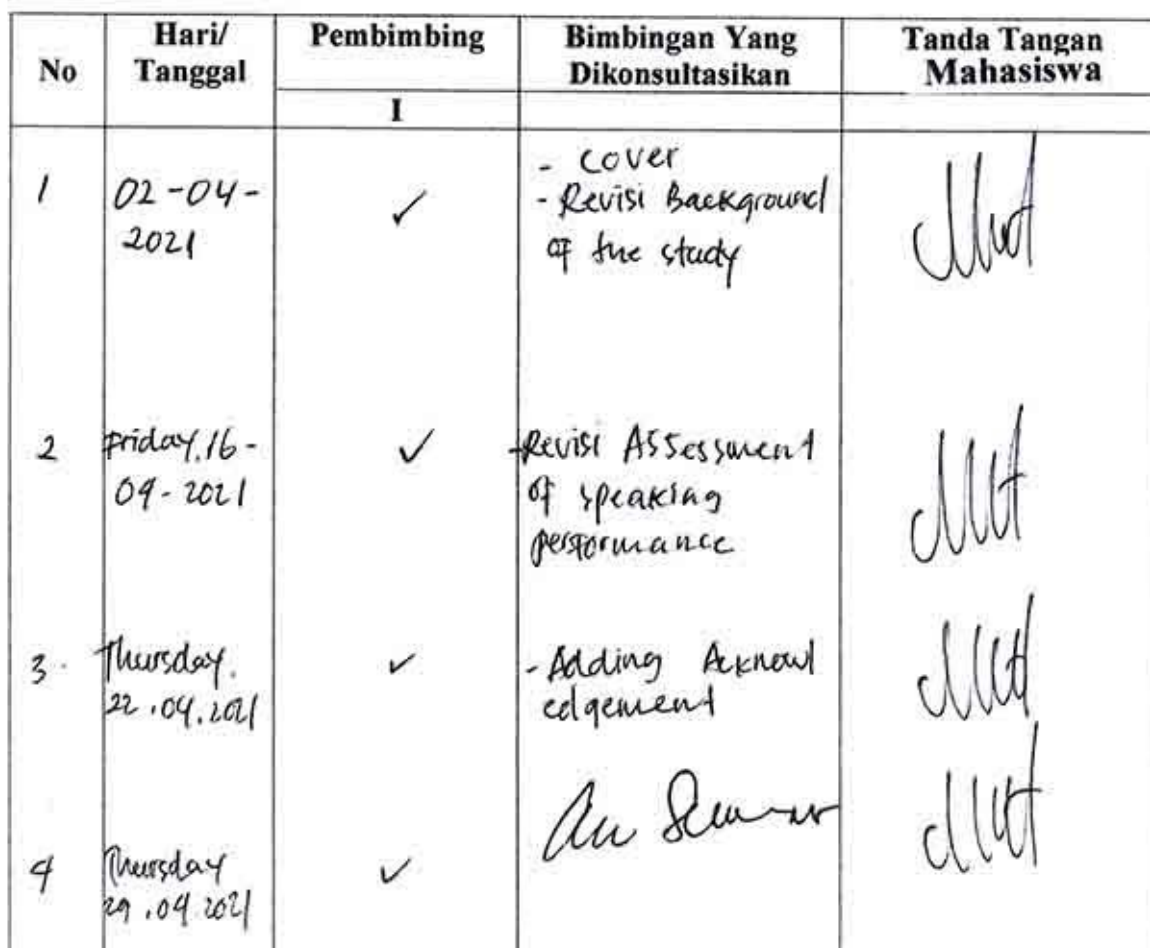 No
Hari/
Tanggal
Pembimbing
Bimbingan Yang
Dikonsultasikan
Tanda Tangan
Mahasiswa
I
1
02-04-
2021
✓
- Cover
- Revisi Background
of the study
2
Friday, 16-
04-2021
✓
-Revisi Assessment
of speaking
performance
3.
Thursday.
22.04.2021
✓
- Adding Acknowl
edgement
4
Thursday
29.04.2021
✓
Acc